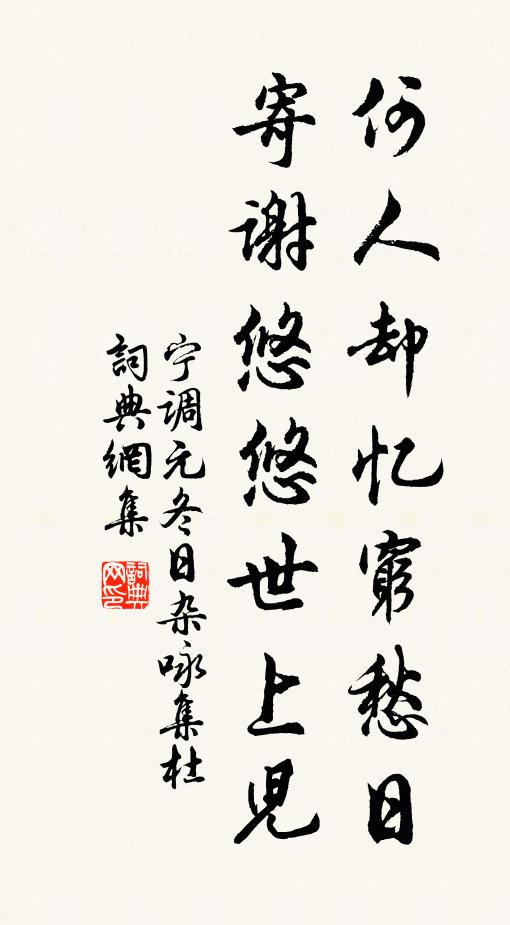 何人却忆穷愁日
寄谢悠悠世上児
宁调元冬日杂咏集杜
詞典網集
詞典网印